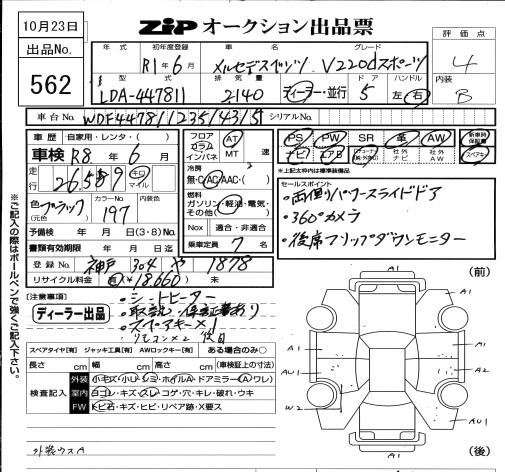 10月23日
ZIP オークション出品票
評価点 4
出品No. 562
年式 初年度登録 R1年6月
車名 メルセデスベンツ
グレード V220dスポーツ
内装 B
型式 LDA-447811
排気量 2140
ディーラー・並行
ドア 5
ハンドル 左・右
車台No. WDF44781123514315
シリアルNo.
車歴 自家用・レンタ・( )
車検 R8年6月
走行 26,589 キロ マイル
色(元色) ブラック
カラーNo. 197
内装色
予備検 年 月 日(3・8)No.
書類有効期限 年 月 日
登録No. 神戸 304 や 1878
リサイクル料金 有(¥18,660) 未
フロア コラム インパネ
AT MT 速
冷房 無・C・AC・AAC・( )
燃料 ガソリン・軽油・電気・その他( )
Nox 適合・非適合
乗車定員 7 名
PS PW SR 革 AW 新車時保証書
ナビ エアB 社外ナビ 社外AW スペアキー
*上記太枠内は標準装備品
セールスポイント
・両側パワースライドドア
・360°カメラ
・後席フリップダウンモニター
[注意事項]
ディーラー出品
・シートヒーター
・取説・保証書あり
・スペアキー×1
スペアタイヤ[有] ジャッキ工具[有] AWロックキー[有] ある場合のみ○
長さ cm 幅 cm 高さ cm (車検証上の寸法)
検査記入
外装 小キズ・小U・シミ・ホイルA・ドアミラー(A・ワレ)
室内 ヨゴレ・キズ・スレ・コゲ・穴・キレ・破れ・ウキ
FW トビ石・キズ・ヒビ・リペア跡・X要ス
外装ウスA
※ご記入の際はボールペンで強くご記入下さい。
(前)
A1
A1
A1
A2
W2
AU1
AU1
A1
(後)